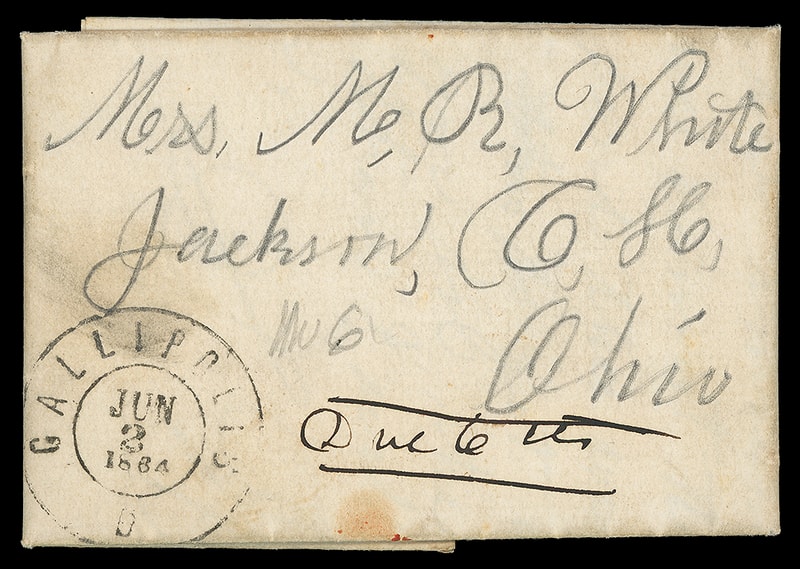 Mrs. M, R, White
Jackson, C, H,
Ohio
Due 6 cts
GALLIPOLIS
JUN
2
1864
O